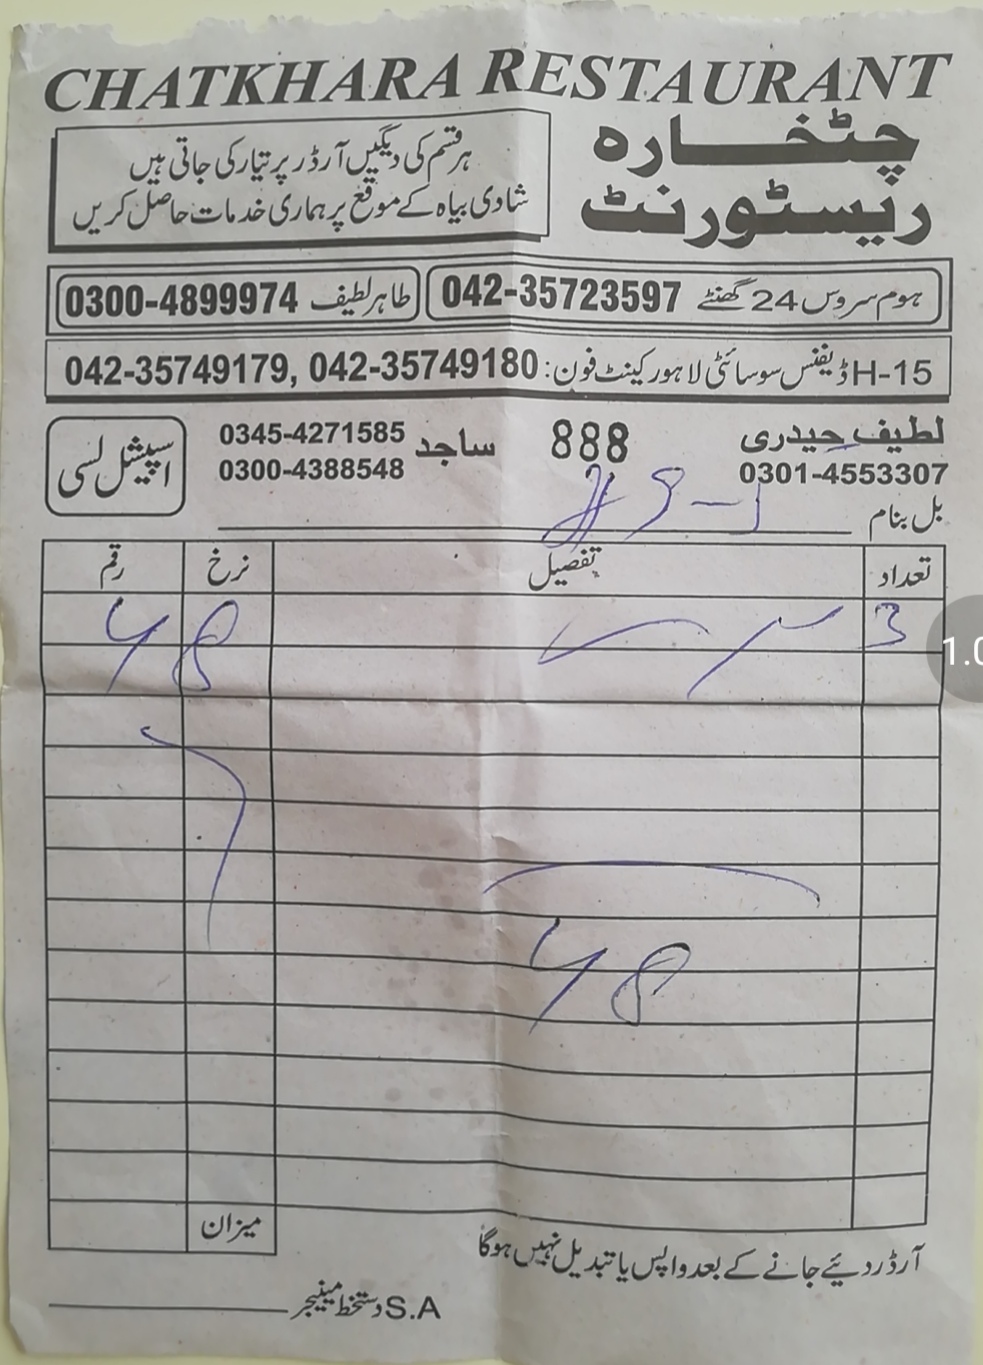 CHATKHARA RESTAURANT
چٹخارہ
ریسٹورنٹ
ہر قسم کی دیگیں آرڈر پر تیار کی جاتی ہیں
شادی بیاہ کے موقع پر ہماری خدمات حاصل کریں
ہوم سروس 24 گھنٹے 042-35723597
طاہر لطیف 0300-4899974
H-15 ڈیفنس سوسائٹی لاہور کینٹ فون: 042-35749179, 042-35749180
لطیف حیدری
0301-4553307
888
ساجد 0345-4271585
0300-4388548
اسپیشل لسی
بل بنام
تعداد تفصیل نرخ رقم
3 48
48
میزان
آرڈر دئیے جانے کے بعد واپس یا تبدیل نہیں ہوگا
S.A دستخط مینیجر
1.0